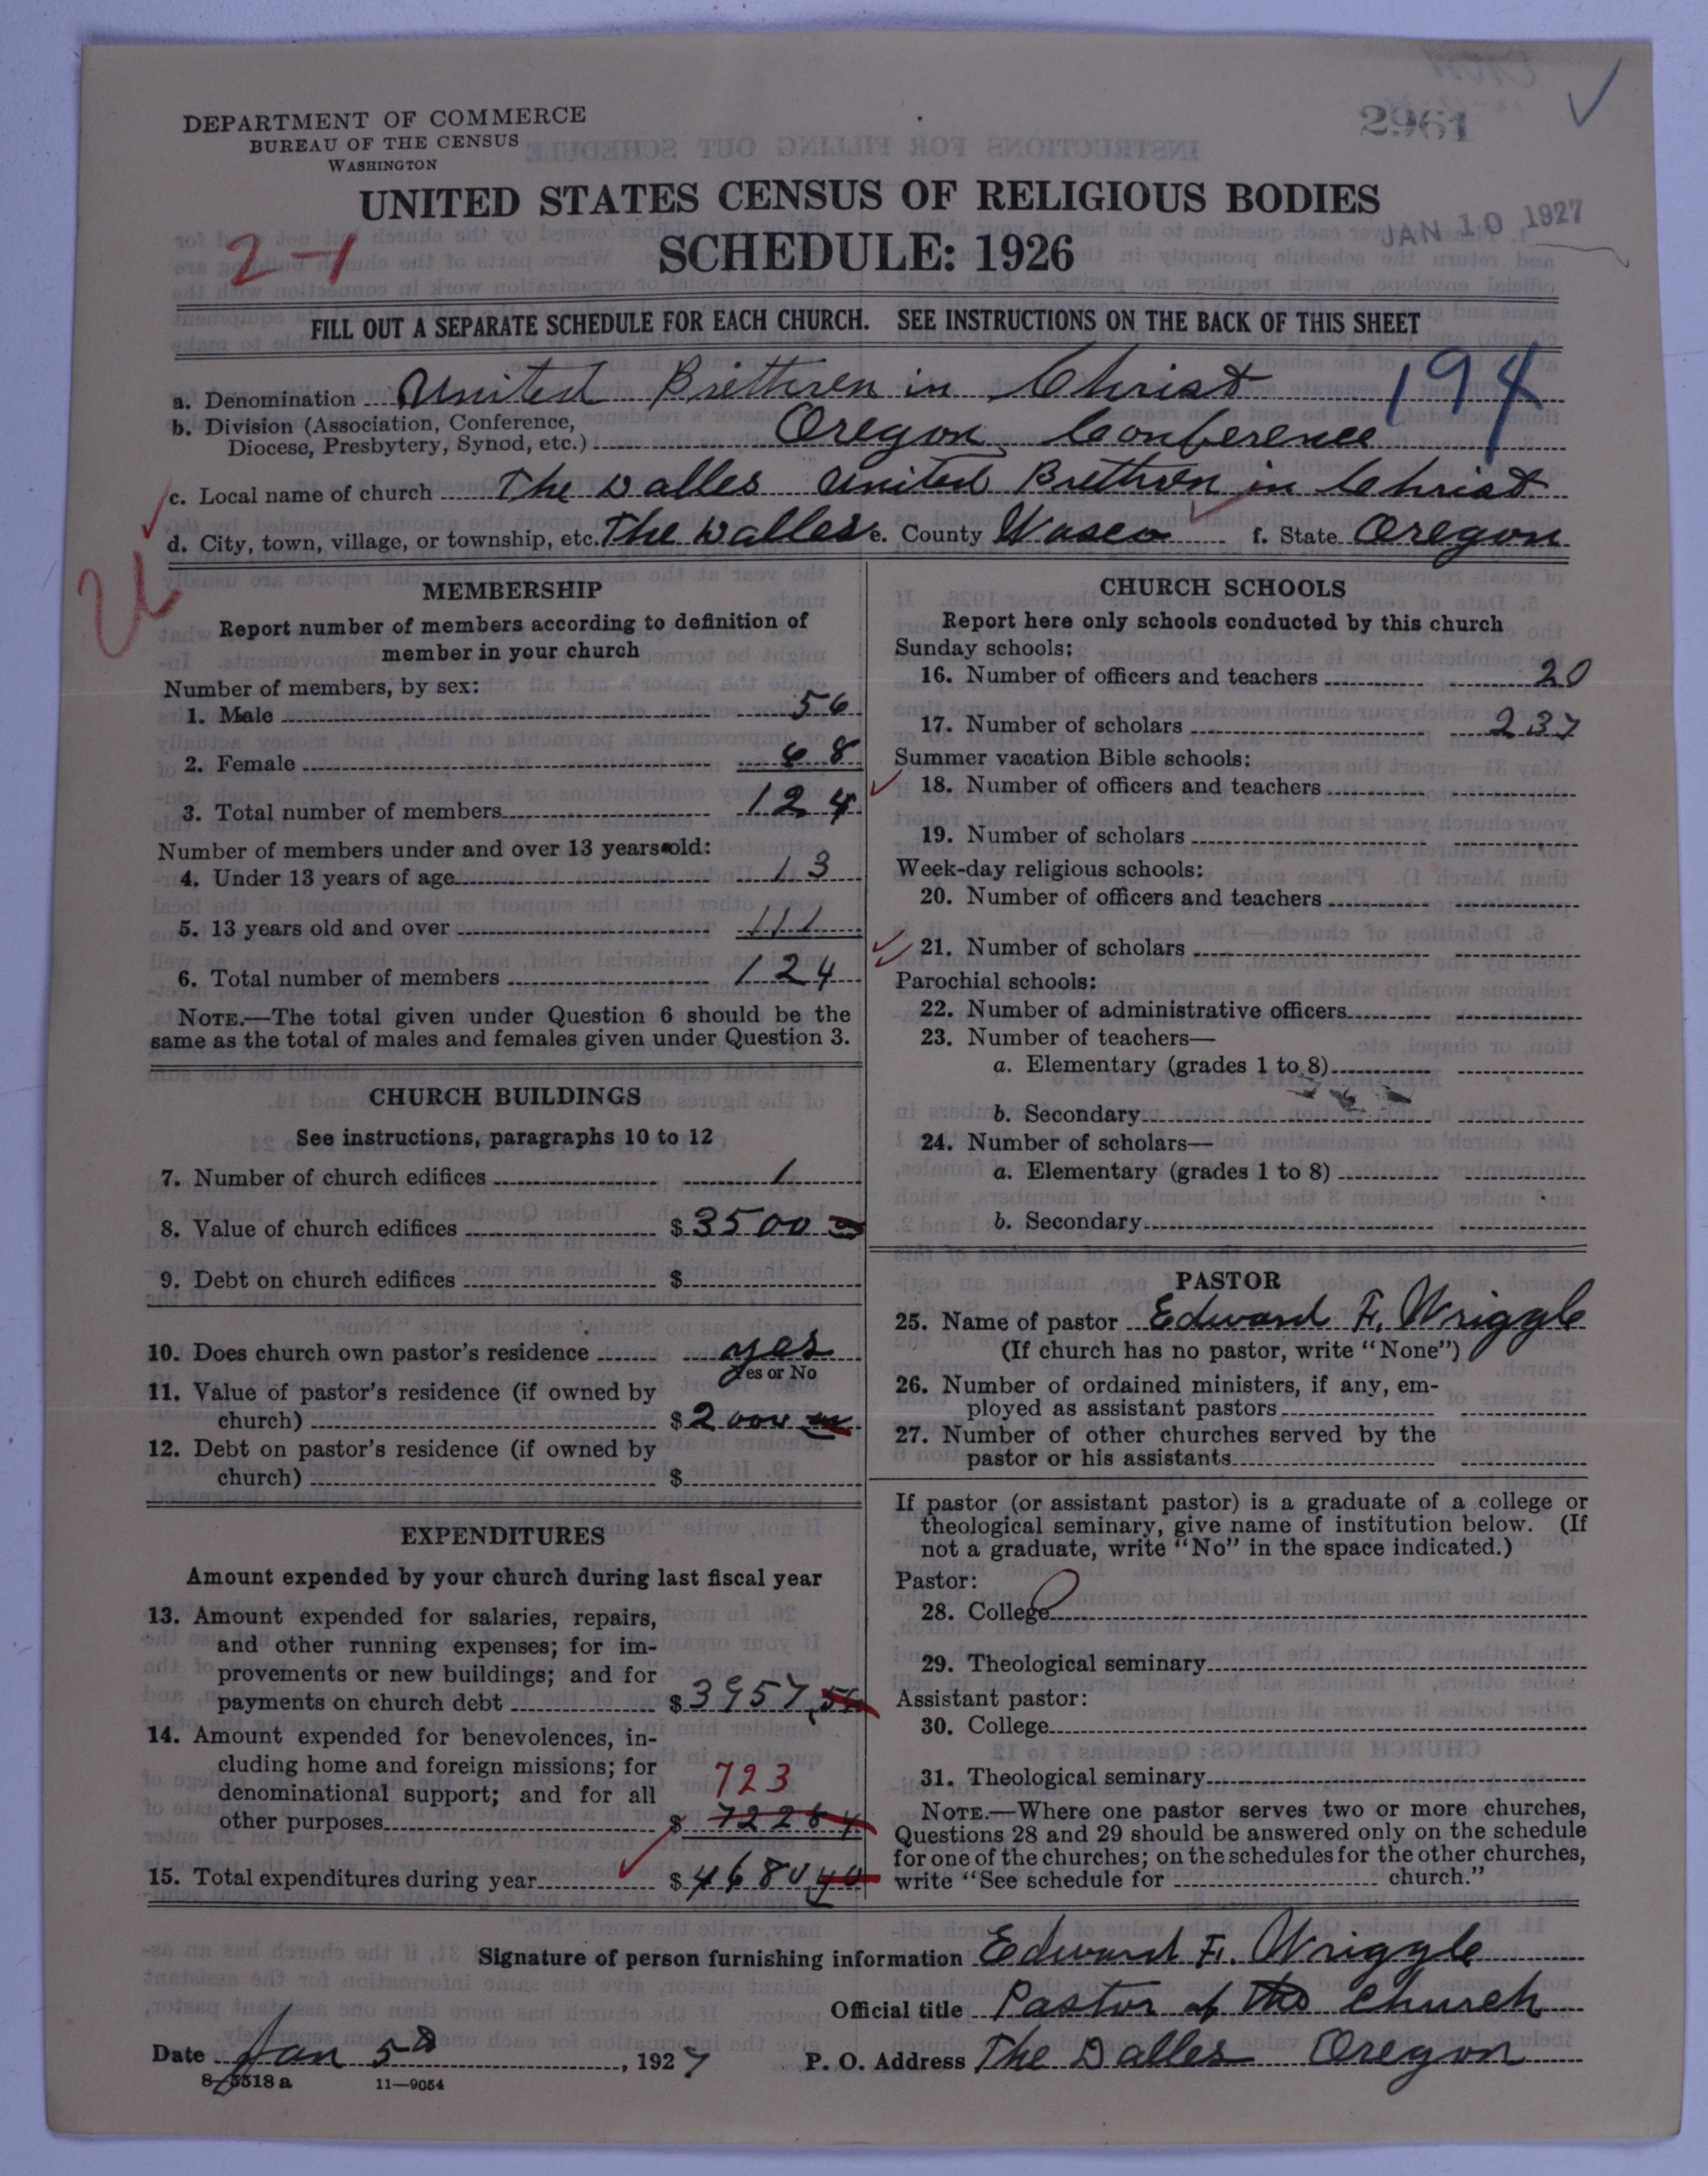 2961
DEPARTMENT OF COMMERCE
BUREAU OF THE CENSUS
WASHINGTON
UNITED STATES CENSUS OF RELIGIOUS BODIES
JAN 10 1927
2-1
SCHEDULE: 1926
FILL OUT A SEPARATE SCHEDULE FOR EACH CHURCH. SEE INSTRUCTIONS ON THE BACK OF THIS SHEET
194
a. Denomination United Brethren in Christ
b. Division (Association, Conference,
Diocese, Presbytery, Synod, etc.) Oregon Conference
c. Local name of church The Dalles United Brethren in Christ
d. City, town, village, or township, etc. The Dalles e. County Wasco f. State Oregon
MEMBERSHIP
Report number of members according to definition of
member in your church
Number of members, by sex:
1. Male 56
2. Female 68
3. Total number of members 124
Number of members under and over 13 years old:
4. Under 13 years of age 13
5. 13 years old and over 111
6. Total number of members 124
NOTE.—The total given under Question 6 should be the
same as the total of males and females given under Question 3.
CHURCH BUILDINGS
See instructions, paragraphs 10 to 12
7. Number of church edifices 1
8. Value of church edifices $3500
9. Debt on church edifices $
10. Does church own pastor's residence yes
Yes or No
11. Value of pastor's residence (if owned by
church) $2000
12. Debt on pastor's residence (if owned by
church) $
EXPENDITURES
Amount expended by your church during last fiscal year
13. Amount expended for salaries, repairs,
and other running expenses; for im-
provements or new buildings; and for
payments on church debt $3957.56
14. Amount expended for benevolences, in-
cluding home and foreign missions; for
denominational support; and for all 723
other purposes $ 722 84
15. Total expenditures during year $4680.40
CHURCH SCHOOLS
Report here only schools conducted by this church
Sunday schools:
16. Number of officers and teachers 20
17. Number of scholars 237
Summer vacation Bible schools:
18. Number of officers and teachers
19. Number of scholars
Week-day religious schools:
20. Number of officers and teachers
21. Number of scholars
Parochial schools:
22. Number of administrative officers
23. Number of teachers—
a. Elementary (grades 1 to 8)
b. Secondary
24. Number of scholars—
a. Elementary (grades 1 to 8)
b. Secondary
PASTOR
25. Name of pastor Edward F. Wriggle
(If church has no pastor, write "None")
26. Number of ordained ministers, if any, em-
ployed as assistant pastors
27. Number of other churches served by the
pastor or his assistants
If pastor (or assistant pastor) is a graduate of a college or
theological seminary, give name of institution below. (If
not a graduate, write "No" in the space indicated.)
Pastor:
28. College
29. Theological seminary
Assistant pastor:
30. College
31. Theological seminary
NOTE.—Where one pastor serves two or more churches,
Questions 28 and 29 should be answered only on the schedule
for one of the churches; on the schedules for the other churches,
write "See schedule for church."
Signature of person furnishing information Edward F. Wriggle
Official title Pastor of the Church
Date Jan 5th, 1927 P. O. Address The Dalles Oregon
8-5518 a 11—9054